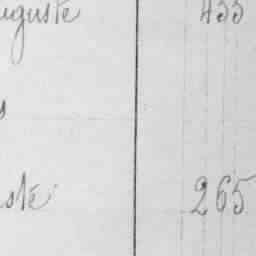 uguste 455
s
ste 265